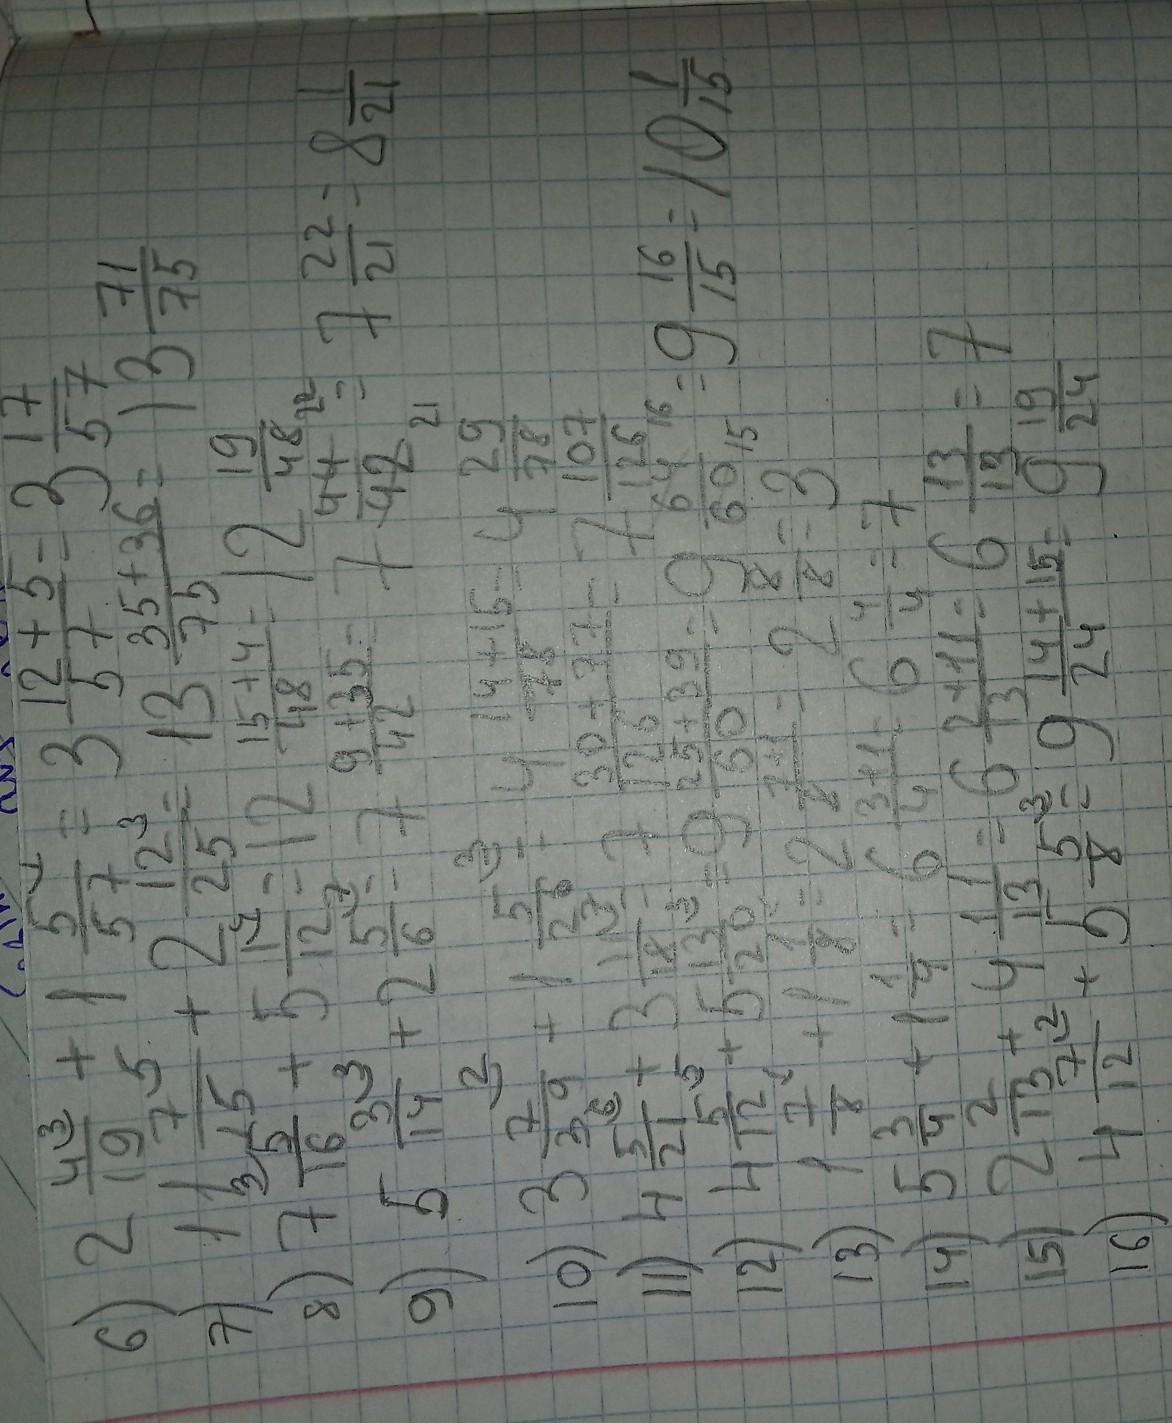 6) 2 4/19 ³ + 1 5/57 ¹ = 3 12+5/57 = 3 17/57
7) 11 7/15 ⁵ + 2 12/25 ³ = 13 35+36/75 = 13 71/75
8) 7 5/16 ³ + 5 1/12 ⁴ = 12 15+4/48 = 12 19/48
9) 5 3/14 ³ + 2 5/6 ⁷ = 7 9+35/42 = 7 44/42 ²²/₂₁ = 7 22/21 = 8 1/21
10) 3 7/39 ² + 1 5/26 ³ = 4 14+15/78 = 4 29/78
11) 4 5/21 ⁶ + 3 11/18 ⁷ = 7 30+77/126 = 7 107/126
12) 4 5/12 ⁵ + 5 13/20 ³ = 9 25+39/60 = 9 64/60 ¹⁶/₁₅ = 9 16/15 = 10 1/15
13) 1 7/8 ¹ + 1 1/8 ¹ = 2 7+1/8 = 2 8/8 = 3
14) 5 3/4 + 1 1/4 = 6 3+1/4 = 6 4/4 = 7
15) 2 2/13 + 4 11/13 = 6 2+11/13 = 6 13/13 = 7
16) 4 7/12 ² + 5 5/8 ³ = 9 14+15/24 = 9 19/24